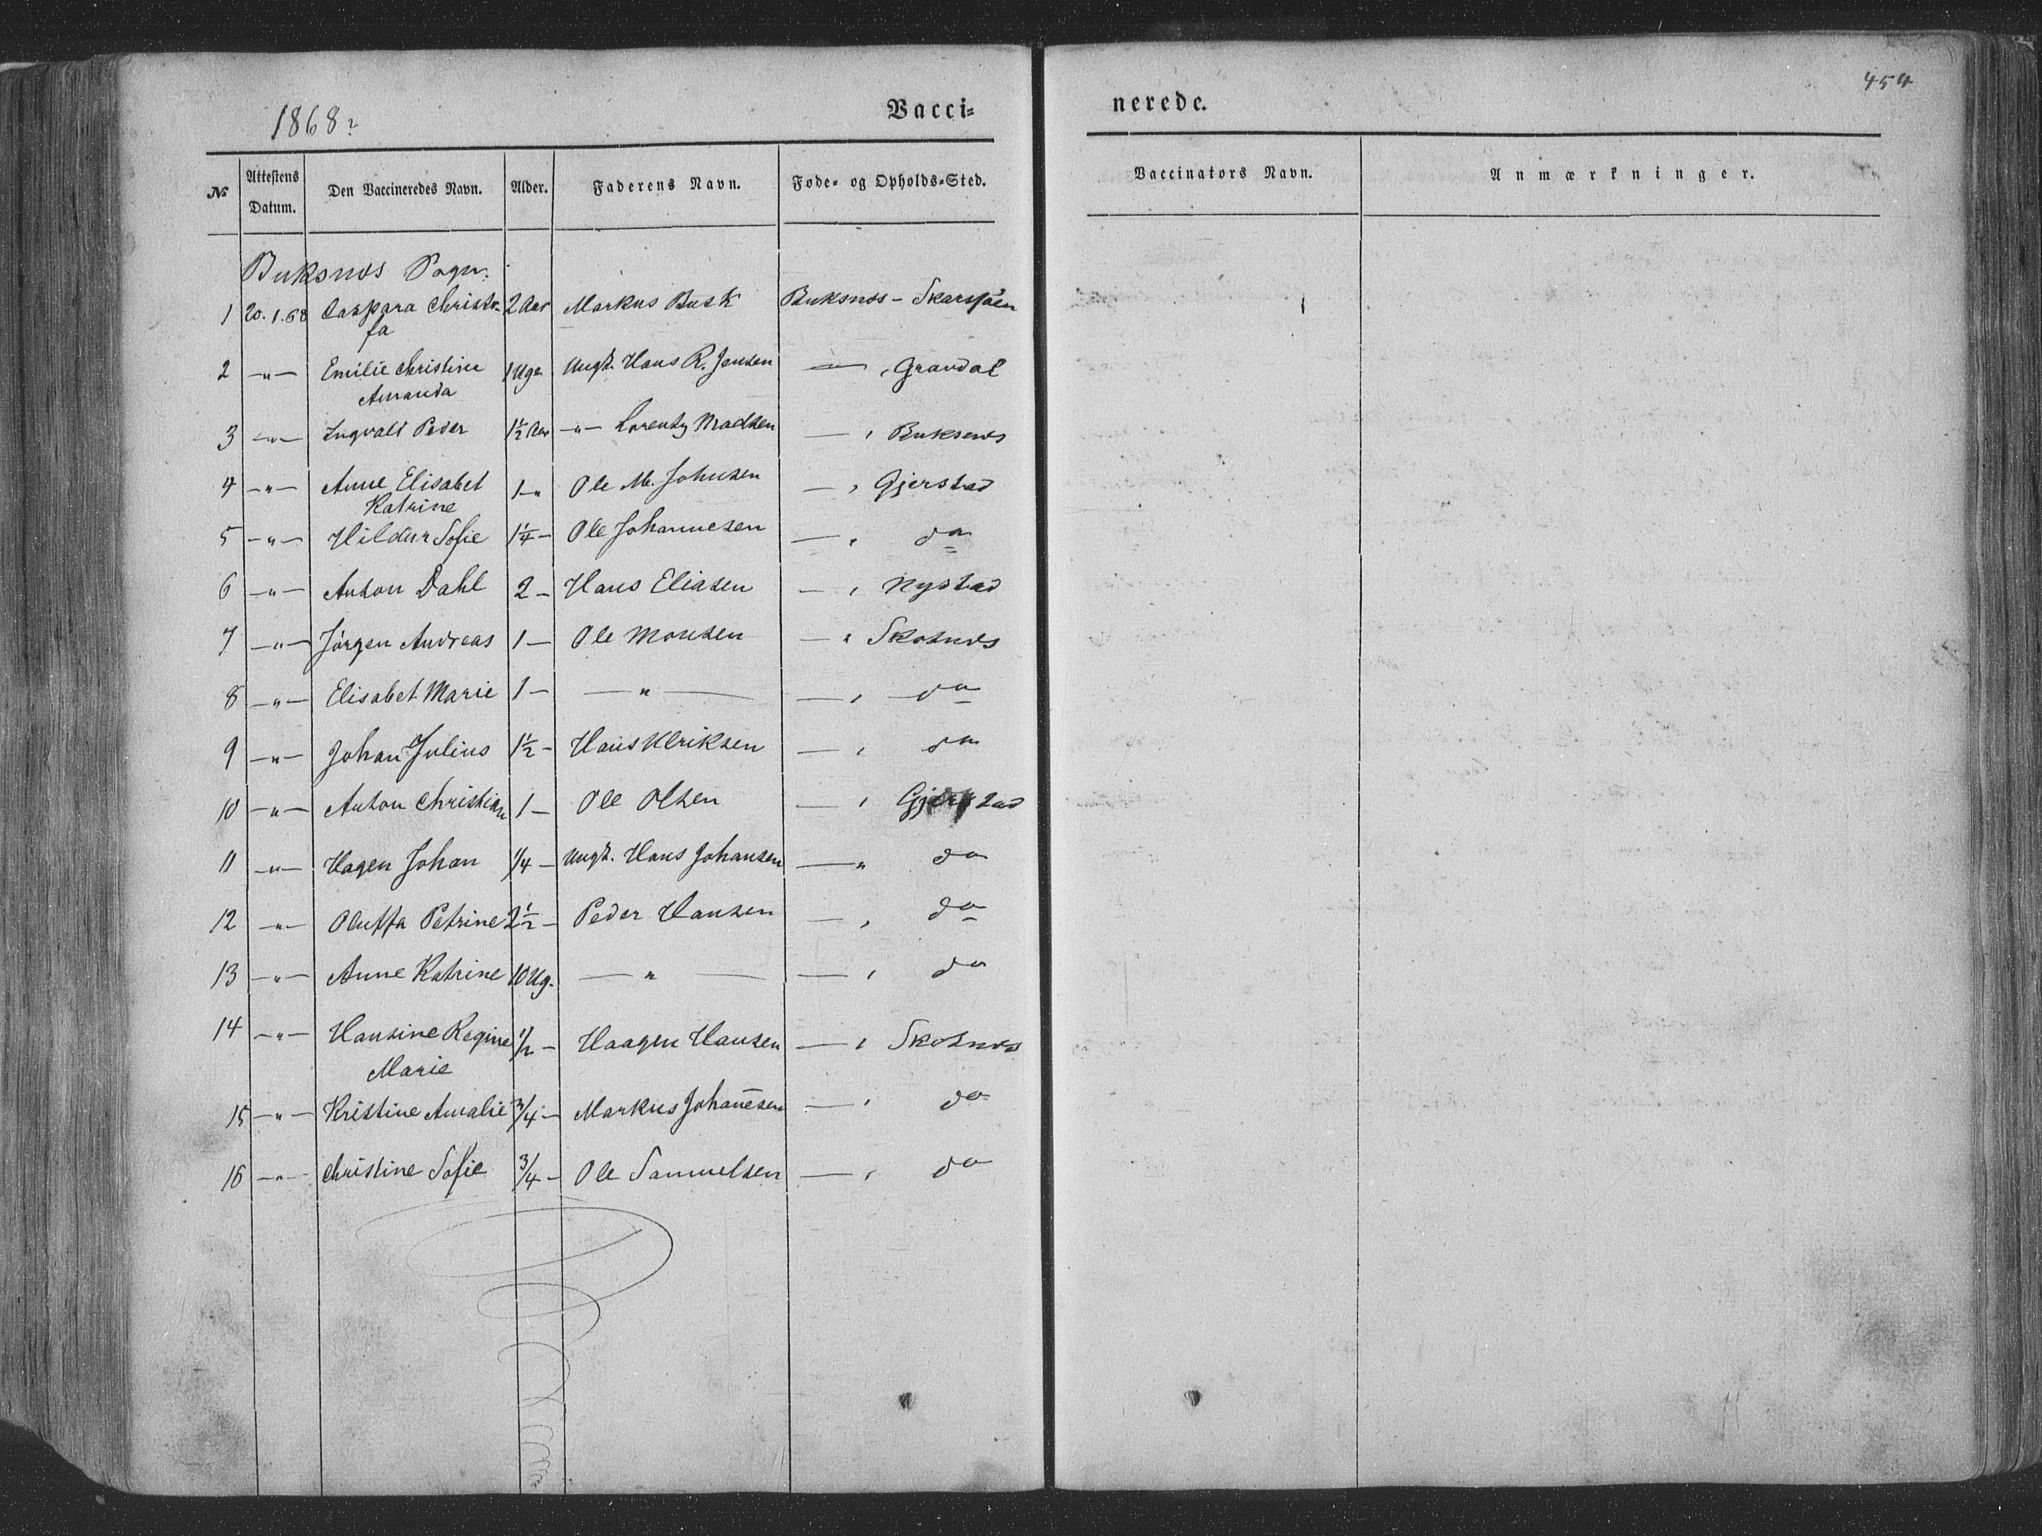 454
1868
Vacci-
nerede.
No Attestens Datum. Den Vaccineredes Navn. Alder. Faderens Navn. Føde- og Opholds-Sted. Vaccinators Navn. Anmærkninger.
Buksnæs Sogn.
1 20.1.68 Caspara Christo- 2 Aar Markus Busk Buksnæs -
fa
2 —"— Emilie Christine 1 Uge Ungk. Hans R. Jensen — , Gravdal
Amanda
3 —"— Ingvalt Peder 1½ Aar —"— Lorentz Madsen — , Buksnæs
4 —"— Anne Elisabet 1 —" Ole M. Johnsen — , Gjerstad
Katrine
5 —"— Hildur Sofie 1¼ — Ole Johannesen — , do
6 —"— Anton Dahl 2 — Hans Eliasen — , Nystad
7 —"— Jørgen Andreas 1 — Ole Monsen — " Skotnæs
8 —"— Elisabet Marie 1 — —"— — , do
9 —"— Johan Julius 1½ — Hans Ulriksen — , do
10 —"— Anton Christian 1 — Ole Olsen — , Gjerstad
11 —"— Hagen Johan 1/4 — Ungk. Hans Johansen — " do
12 —"— Oluffa Petrine 2½ — Peder Hansen — , do
13 —"— Anne Katrine 10 Ug. —"— — , do
14 —"— Hansine Regine 1/2 — Haagen Hansen — , Skotnæs
Marie
15 —"— Kristine Amalie 3/4 — Markus Johan̄esen — , do
16 —"— Christine Sofie 3/4 — Ole Samuelsen — , do